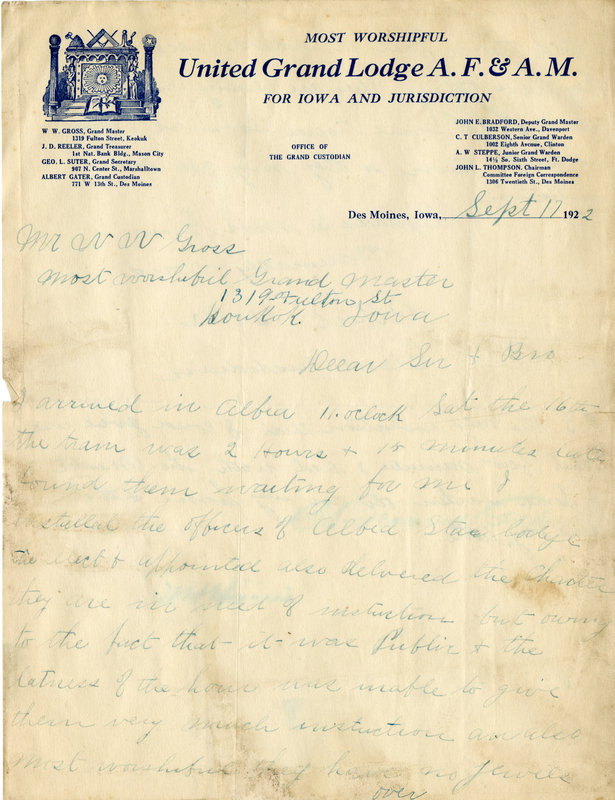 MOST WORSHIPFUL
United Grand Lodge A. F. & A. M.
FOR IOWA AND JURISDICTION
W. W. GROSS, Grand Master
1319 Fulton Street, Keokuk
J. D. REELER, Grand Treasurer
1st Nat. Bank Bldg., Mason City
GEO. L. SUTER, Grand Secretary
907 N. Center St., Marshalltown
ALBERT GATER, Grand Custodian
771 W 13th St., Des Moines
OFFICE OF
THE GRAND CUSTODIAN
JOHN E. BRADFORD, Deputy Grand Master
1032 Western Ave., Davenport
C. T. CULBERSON, Senior Grand Warden
1002 Eighth Avenue, Clinton
A. W. STEPPE, Junior Grand Warden
14½ So. Sixth Street, Ft. Dodge
JOHN L. THOMPSON, Chairman
Committee Foreign Correspondence
1306 Twentieth St., Des Moines
Des Moines, Iowa, Sept 17 1922
Mr W W Gross
Most worshibful Grand Master
1319 Fulton St
Iowa
Dear Sir & Bro
I arrived in Albia 11. oclock Sat the 16th
the train was 2 Hours & 15 minutes late
found them waiting for me I
installed the officers of Albia Star Lodge
the elect & appointed also delivered the Charter
they are in need of instuction but owing
to the fact that it was Public & the
latness of the hour was unable to give
them very much instuction an also
most worshibful they have no Jewels
over